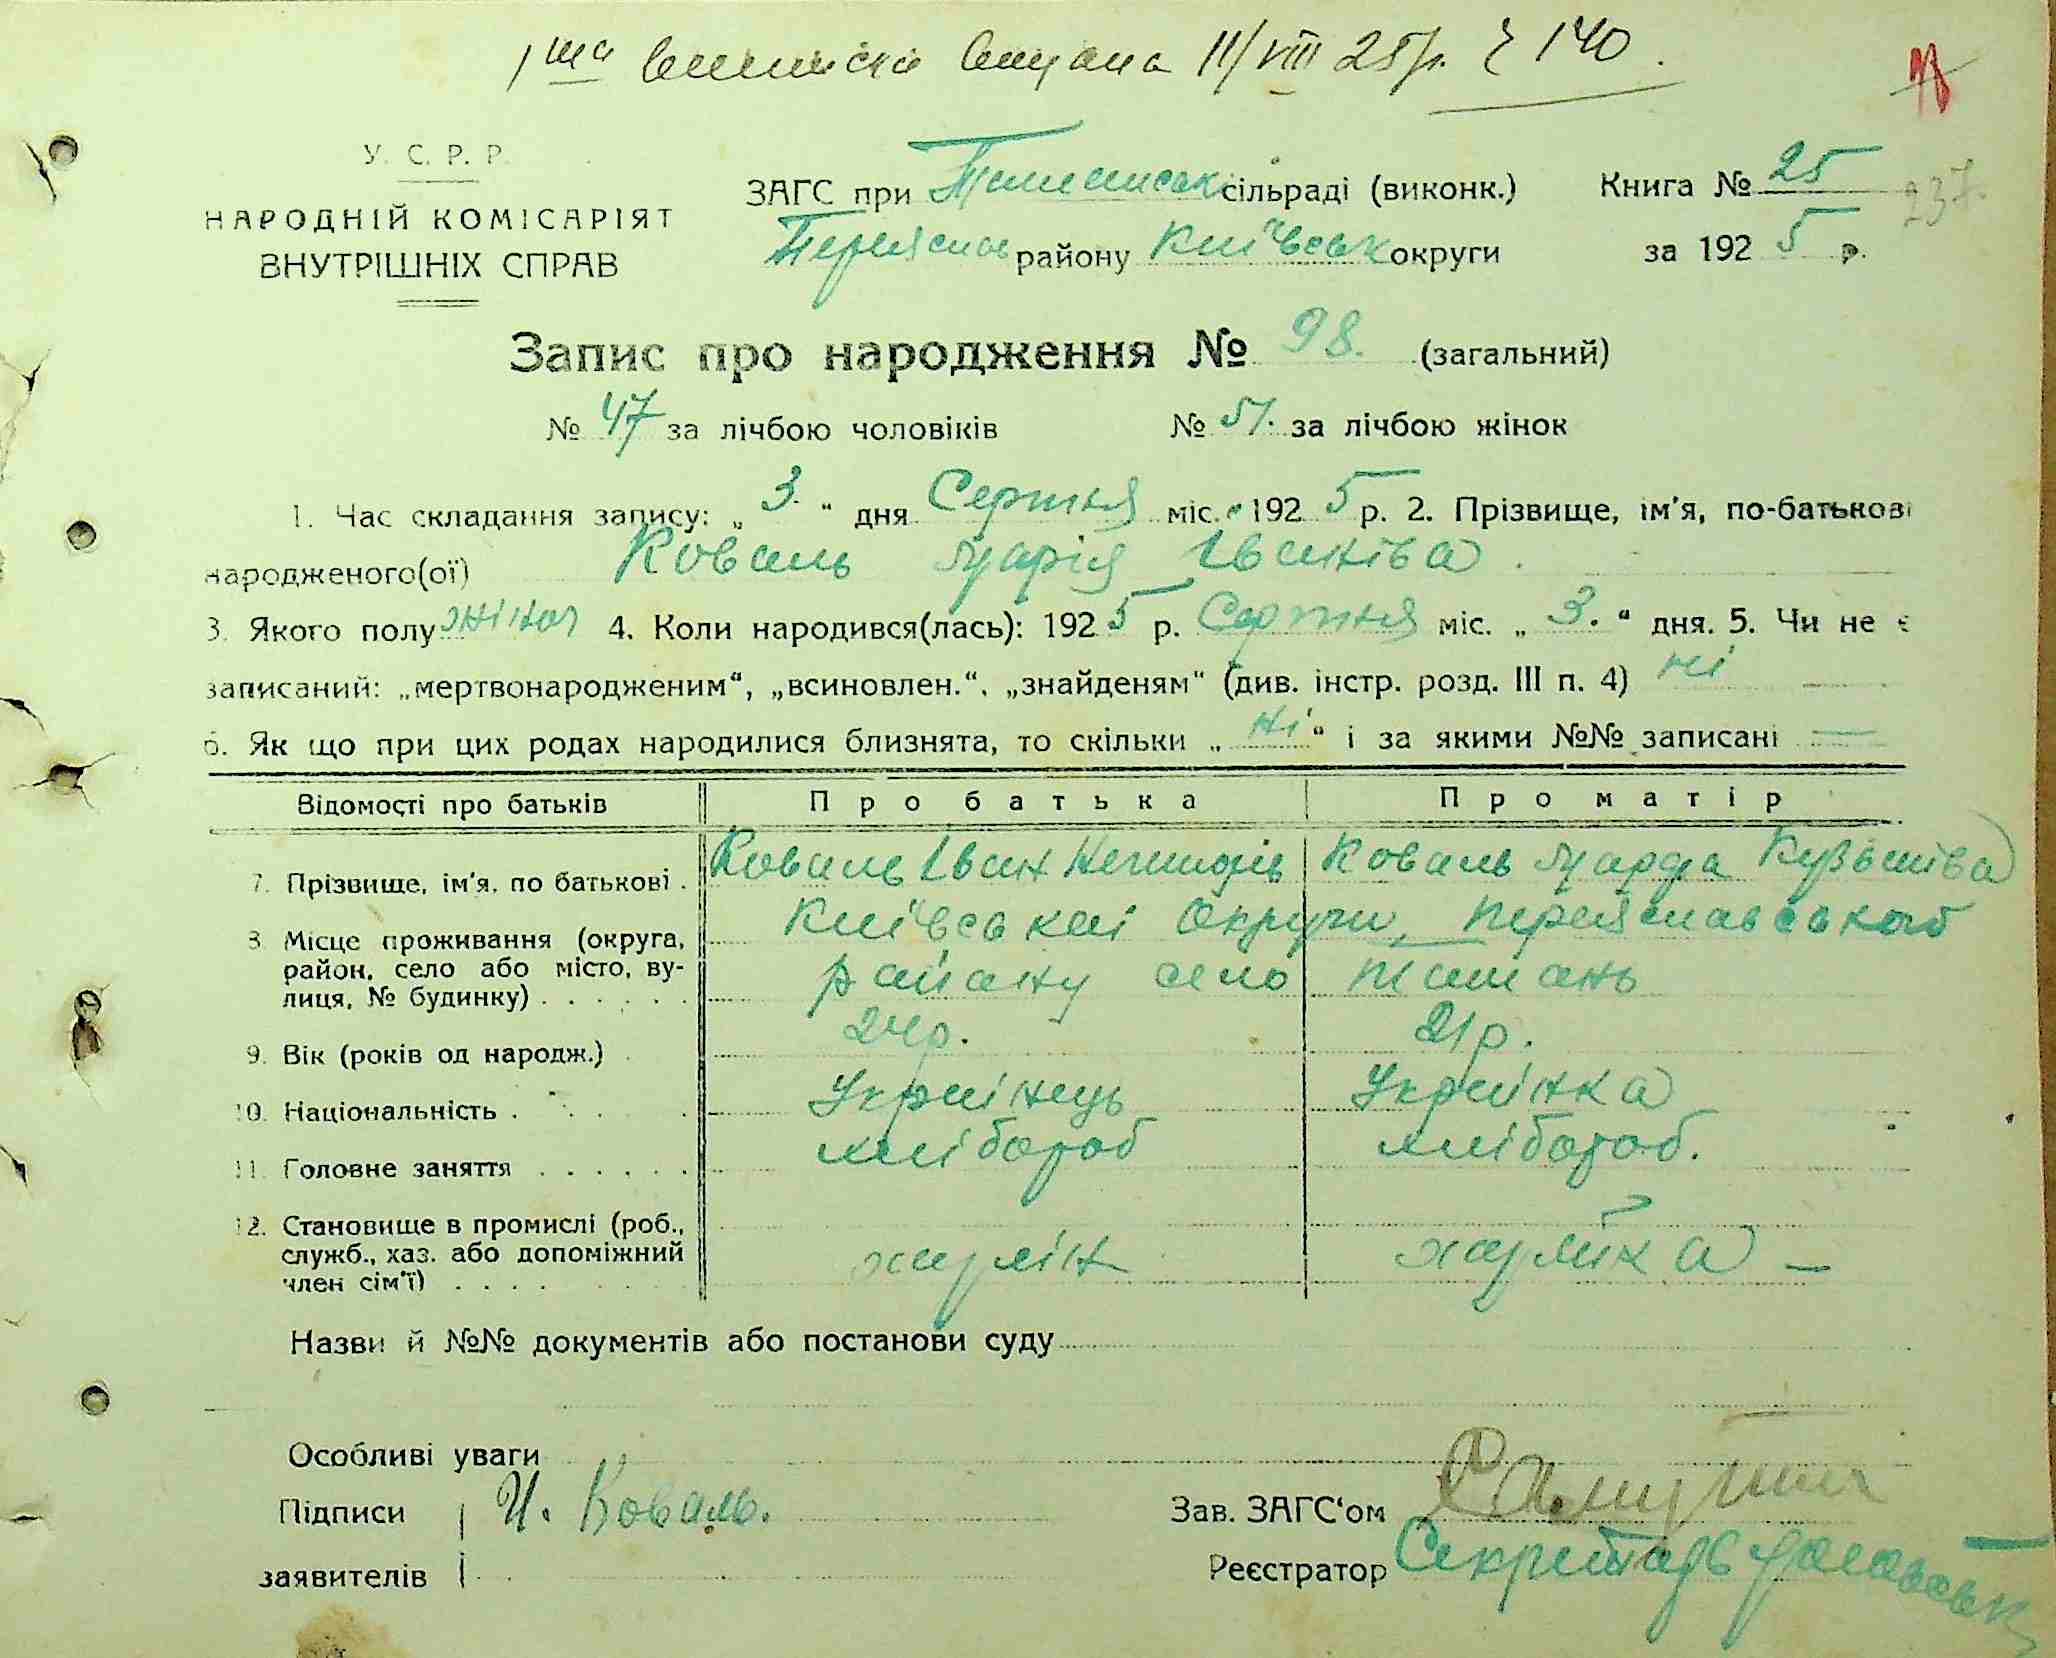 1ша виписка видана 11/VIII 25р. ч 140.
У. С. Р. Р.
НАРОДНІЙ КОМІСАРІЯТ
ВНУТРІШНІХ СПРАВ
ЗАГС при сільраді (виконк.) Книга № 25
237.
Переяслав району Київськ округи за 1925 р.
Запис про народження № 98. (загальний)
№ 47 за лічбою чоловіків № 51. за лічбою жінок
1. Час складання запису: „ 3. “ дня Серпня міс. 1925 р. 2. Прізвище, ім'я, по-батькові
народженого(ої) Коваль Марія Іванівна.
3. Якого полу жіноч 4. Коли народився(лась): 1925 р. Серпня міс. „ 3. “ дня. 5. Чи не є
записаний: „мертвонародженим“, „всиновлен.“, „знайденям“ (див. інстр. розд. III п. 4) ні
6. Як що при цих родах народилися близнята, то скільки „ ні “ і за якими №№ записані —
Відомості про батьків Про батька Про матір
7. Прізвище, ім'я, по батькові . Коваль Іван Коваль Марфа Кузьмівна
8. Місце проживання (округа, район, село або місто, вулиця, № будинку) . . . . . . Київської Округи, Переяславського
району село
9. Вік (років од народж.) 24р. 21р.
10. Національність . Українець Українка
11. Головне заняття . . . . . . хлібороб хлібороб.
12. Становище в промислі (роб.,
служб., хаз. або допоміжний
член сім'ї) . . . .
Назви й №№ документів або постанови суду
Особливі уваги
Підписи И. Коваль. Зав. ЗАГС‘ом
заявителів Реєстратор Секретарь